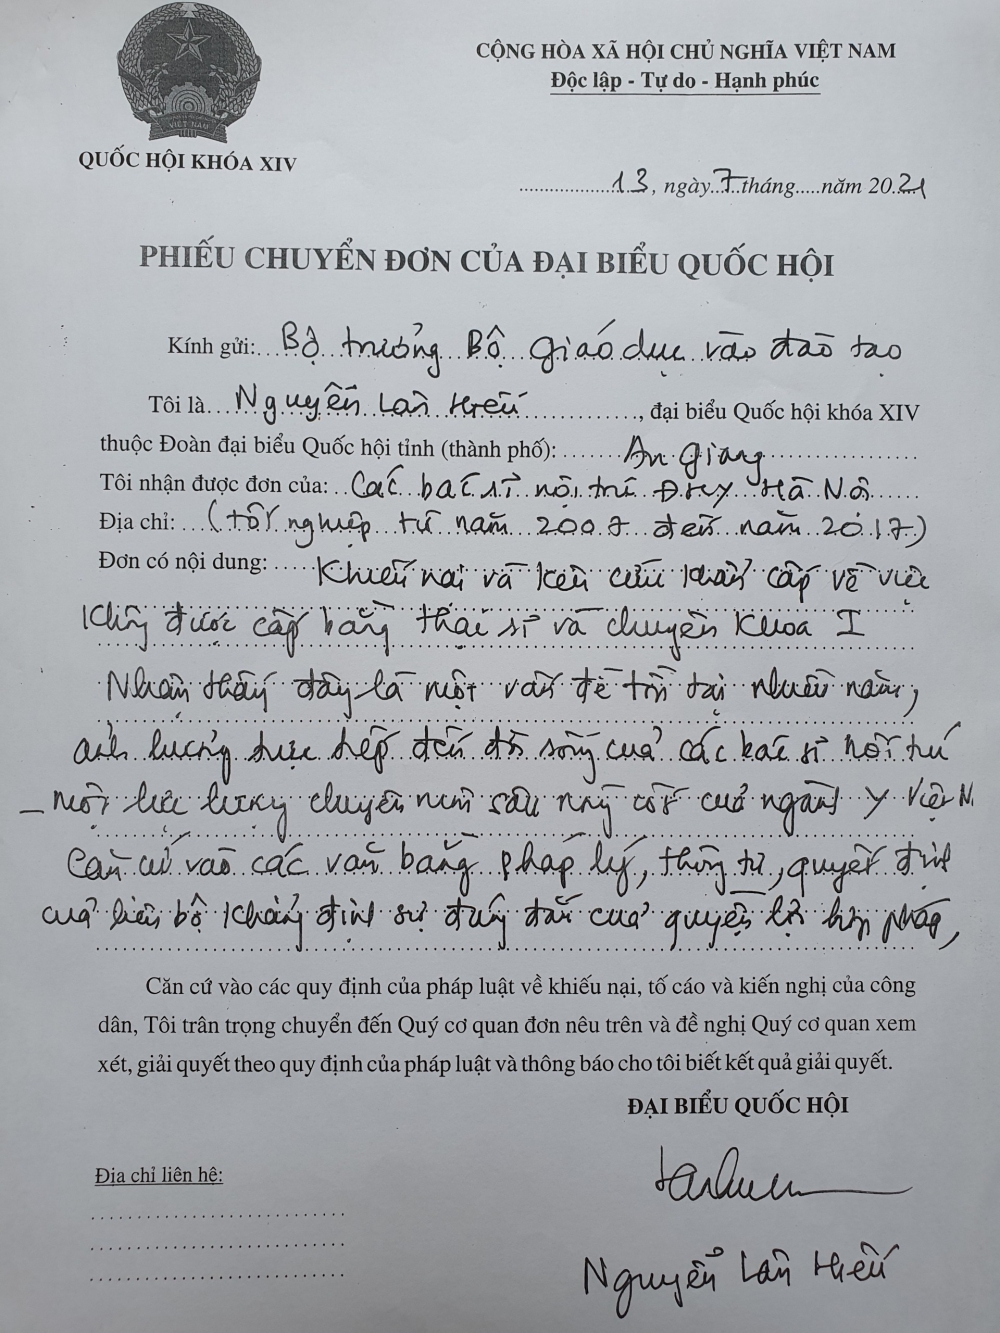 CỘNG HÒA XÃ HỘI CHỦ NGHĨA VIỆT NAM
Độc lập - Tự do - Hạnh phúc
VIỆT NAM
QUỐC HỘI KHÓA XIV
13, ngày 7 tháng.....năm 2021
PHIẾU CHUYỂN ĐƠN CỦA ĐẠI BIỂU QUỐC HỘI
Kính gửi: Bộ trưởng Bộ giáo dục vào đào tạo
Tôi là Nguyễn Lân Hiếu, đại biểu Quốc hội khóa XIV
thuộc Đoàn đại biểu Quốc hội tỉnh (thành phố): An Giang
Tôi nhận được đơn của: Các bác sĩ nội trú ĐHY Hà Nội
Địa chỉ: (tốt nghiệp từ năm 2007 đến năm 2017)
Đơn có nội dung: Khiếu nại và kêu cứu khẩn cấp về việc
không được cấp bằng thạc sĩ và chuyên khoa I
Nhận thấy đây là một vấn đề tồn tại nhiều năm,
ảnh hưởng trực tiếp đến đời sống của các bác sĩ nội trú
– một lực lượng chuyên môn sâu nòng cốt của ngành Y Việt N
Căn cứ vào các văn bằng pháp lý, thông tư, quyết định
của liên bộ khẳng định sự đúng đắn của quyền lợi hợp pháp,
Căn cứ vào các quy định của pháp luật về khiếu nại, tố cáo và kiến nghị của công
dân, Tôi trân trọng chuyển đến Quý cơ quan đơn nêu trên và đề nghị Quý cơ quan xem
xét, giải quyết theo quy định của pháp luật và thông báo cho tôi biết kết quả giải quyết.
ĐẠI BIỂU QUỐC HỘI
Địa chỉ liên hệ:
Nguyễn Lân Hiếu